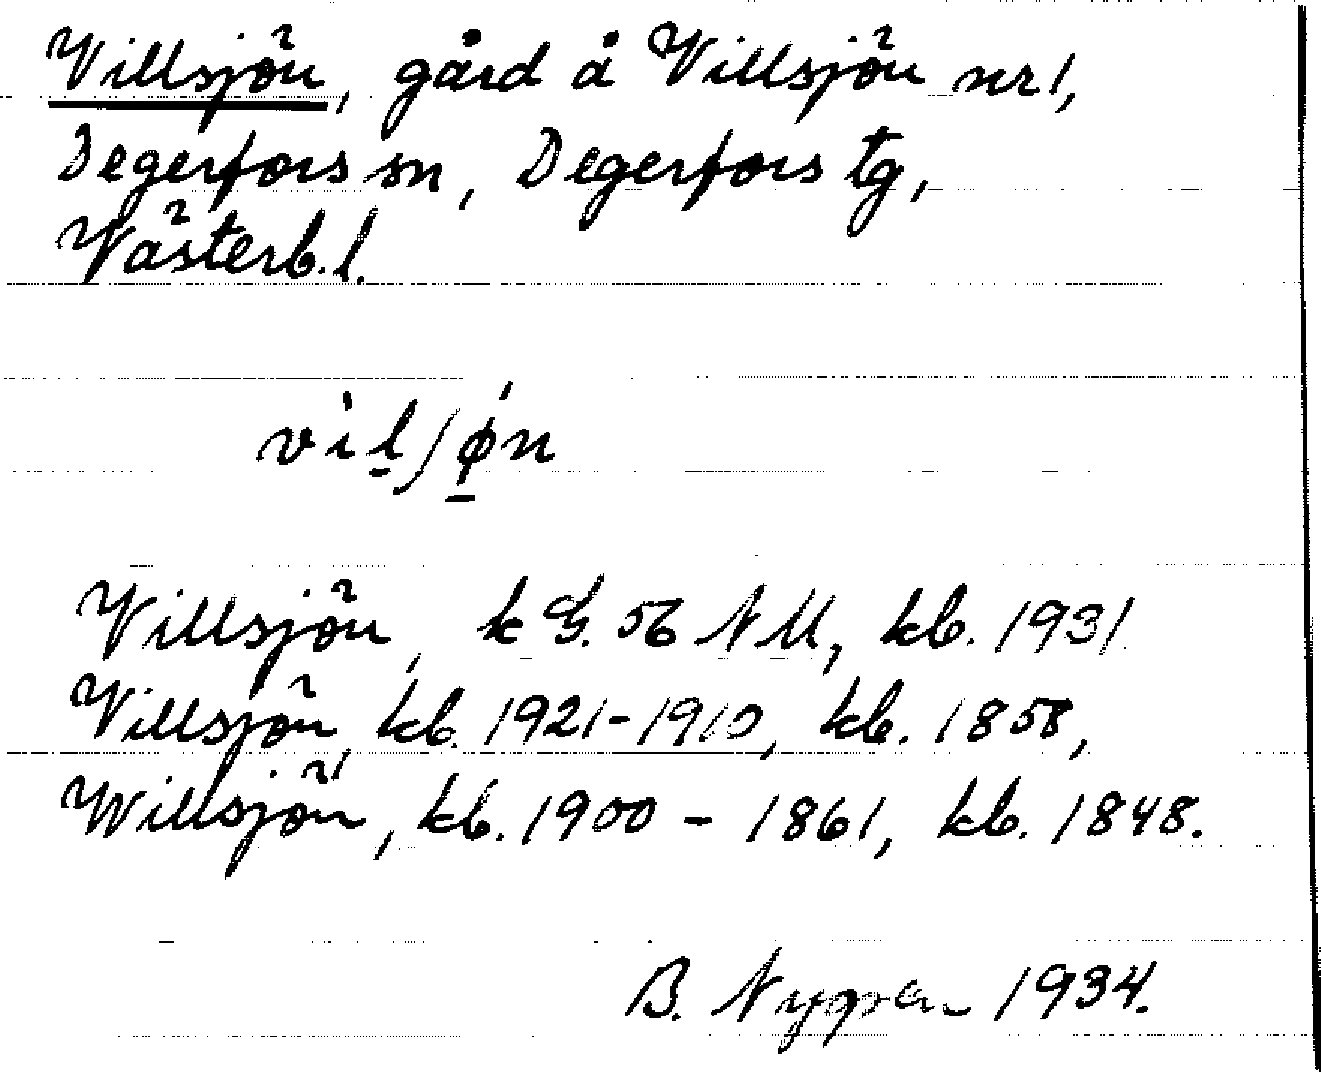 Villsjön, gård å Villsjön nr 1,
Degerfors sn, Degerfors tg,
Västerb. l.
vilʃøn
Villsjön, k G. 56 NM, kb. 1931
Villsjön, kb. 1921-1910, kb. 1858,
Willsjön, kb. 1900 - 1861, kb. 1848.
B. 1934.